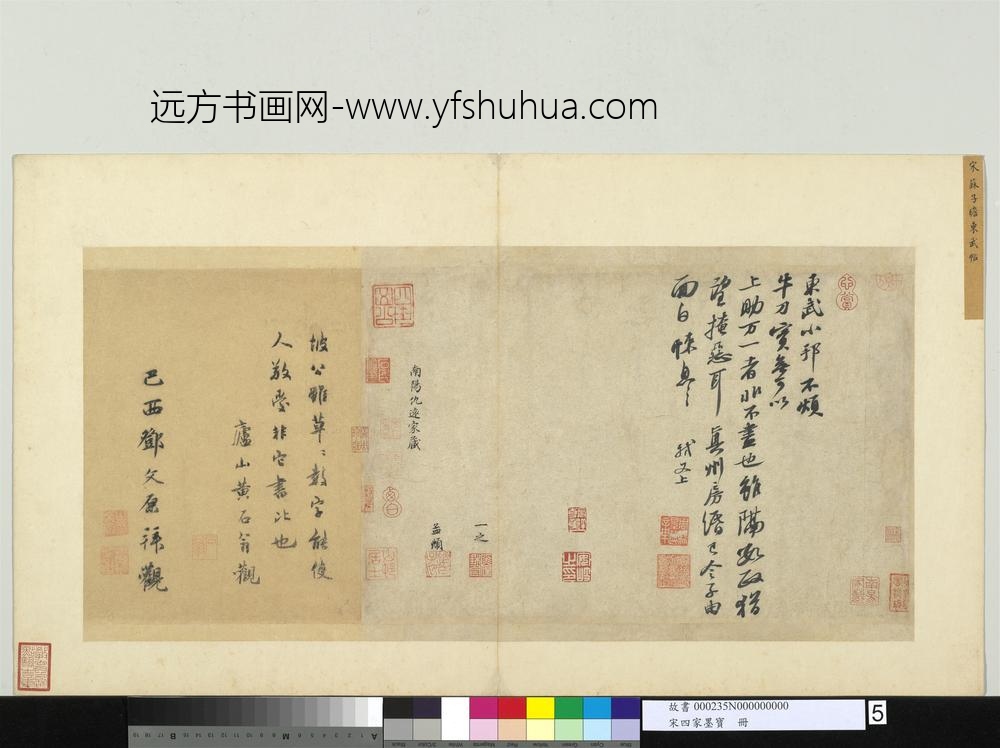 远方书画网-www.yfshuhua.com
宋蘇子瞻東武帖
東武小邦不煩
牛刀實無可以
上助万一者非不盡也雖隔數政猶
望掩惡耳真州房緡已令子由
面白悚息〻
軾又上
一之
孟頫
南陽仇遠家藏
坡公雖草〻數字能使
人敬愛非它書比也
廬山黃石翁觀
己酉鄧文原拜觀
故書 000235N000000000
宋四家墨寶 冊
5